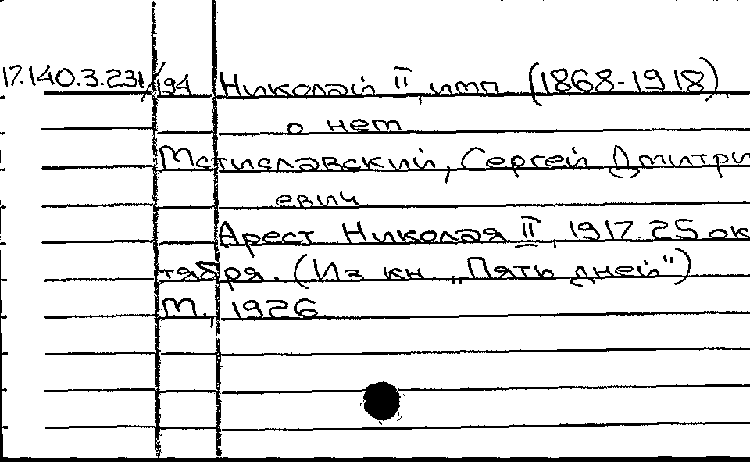 17.140.3.231/194 Николай II, имп. (1868-1918)
о нем
Мстиславский, Сергей Дмитри
евич
Арест Николая II, 1917. 25 ок
тября. (Из кн. „Пять дней")
М., 1926